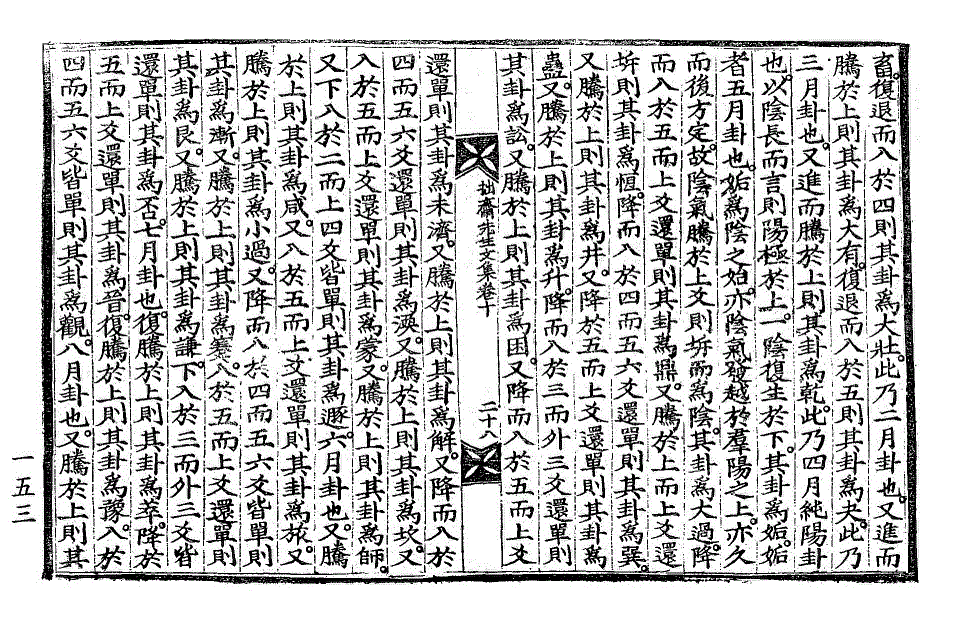 畜。復退而入於四則其卦爲大壯。此乃二月卦也。又進而
騰於上則其卦爲大有。復退而入於五則其卦爲夬。此乃
三月卦也。又進而騰於上則其卦爲乾。此乃四月純陽卦
也。以陰長而言則陽極於上。一陰復生於下。其卦爲姤。姤
者五月卦也。姤爲陰之始。亦陰氣發越於羣陽之上。亦久
而後方定。故陰氣騰於上爻則坼而爲陰。其卦爲大過。降
而入於五而上爻還單則其卦爲鼎。又騰於上而上爻還
坼則其卦爲恒。降而入於四而五六爻還單則其卦爲巽。
又騰於上則其卦爲井。又降於五而上爻還單則其卦爲
蠱。又騰於上則其卦爲升。降而入於三而外三爻還單則
其卦爲訟。又騰於上則其卦爲困。又降而入於五而上爻
拙齋先生文集卷十
二十八
還單則其卦爲未濟。又騰於上則其卦爲解。又降而入於
四而五六爻還單則其卦爲渙。又騰於上則其卦爲坎。又
入於五而上爻還單則其卦爲蒙。又騰於上則其卦爲師。
又下入於二而上四爻皆單則其卦爲遯。六月卦也。又騰
於上則其卦爲咸。又入於五而上爻還單則其卦爲旅。又
騰於上則其卦爲小過。又降而入於四而五六爻皆單則
其卦爲漸。又騰於上則其卦爲蹇。入於五而上爻還單則
其卦爲艮。又騰於上則其卦爲謙。下入於三而外三爻皆
還單則其卦爲否。七月卦也。復騰於上則其卦爲萃。降於
五而上爻還單則其卦爲晉。復騰於上則其卦爲豫。入於
四而五六爻皆單則其卦爲觀。八月卦也。又騰於上則其
一五三